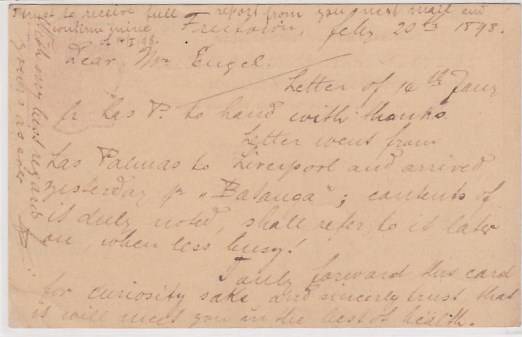 I trust to receive full report from you next mail and
confirm mine
Freetown, feby 20th 1898.
Dear Mr Engel.
Letter of 14th Jany
fr Las P. to hand with thanks.
Letter went from
Las Palmas to Liverpool and arrived
yesterday pr "Batanga"; contents of
it duly noted, shall refer to it later
on, when less busy!
I only forward this card
for curiosity sake and sincerly trust, that
it will meet you in the best of health.
With very best regards
yours as ever